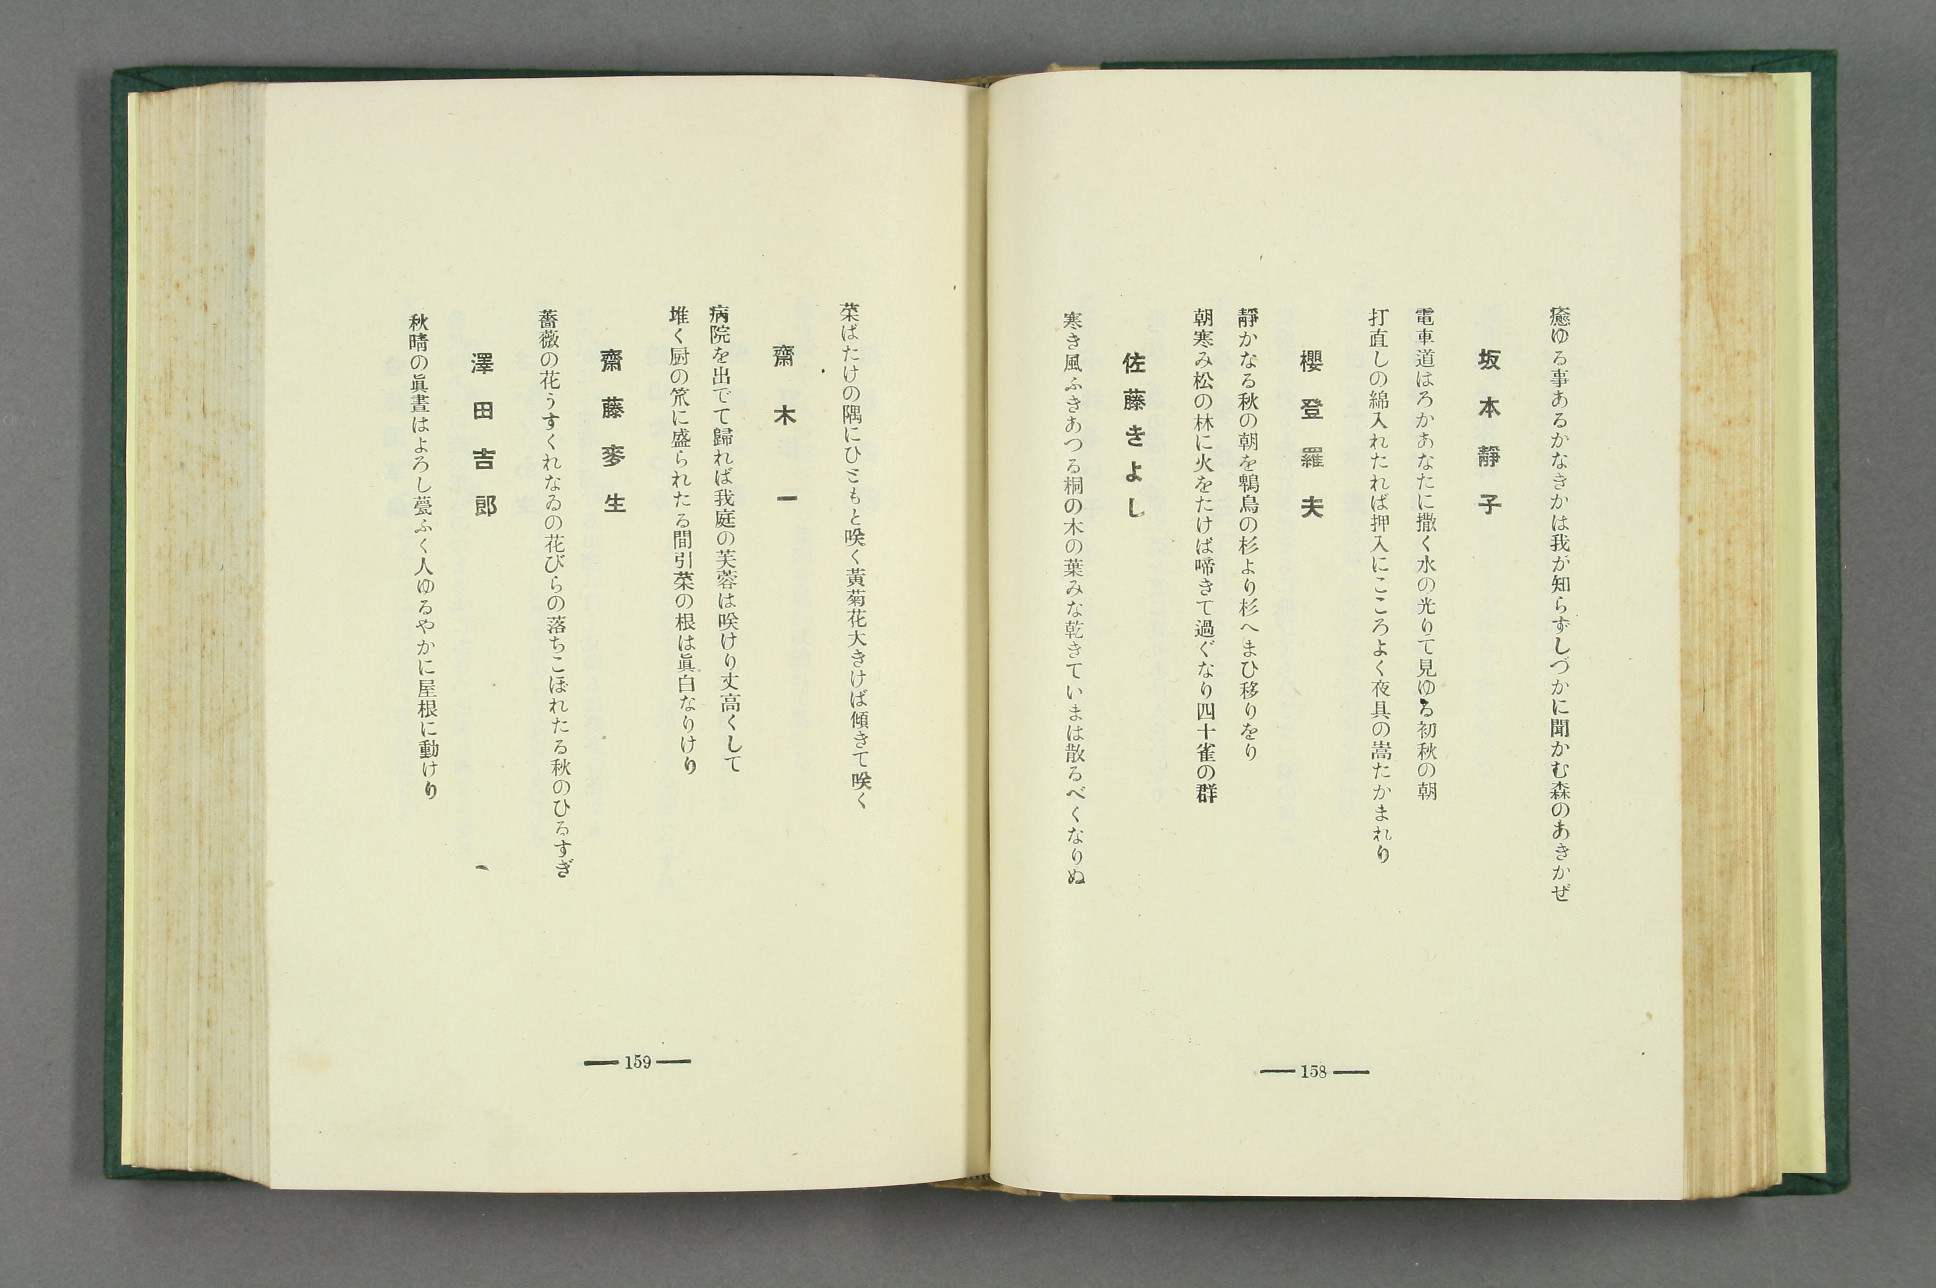 癒ゆる事あるかなきかは我が知らずしづかに聞かむ森のあきかぜ
坂本靜子
電車道はろかあなたに撒く水の光りて見ゆる初秋の朝
打直しの綿入れたれば押入にこころよく夜具の嵩たかまれり
櫻登羅夫
靜かなる秋の朝を鵯鳥の杉より杉へまひ移りをり
朝寒み松の林に火をたけば啼きて過ぐなり四十雀の群
佐藤きよし
寒き風ふきあつる桐の木の葉みな乾きていまは散るべくなりぬ
― 158 ―
菜ばたけの隅にひともと咲く黃菊花大きけば傾きて咲く
齋木一
病院を出でて歸れば我庭の芙蓉は咲けり丈高くして
堆く厨の笊に盛られたる間引菜の根は眞白なりけり
齋藤麥生
薔薇の花うすくれなゐの花びらの落ちこぼれたる秋のひるすぎ
澤田吉郎
秋晴の眞晝はよろし甍ふく人ゆるやかに屋根に動けり
― 159 ―